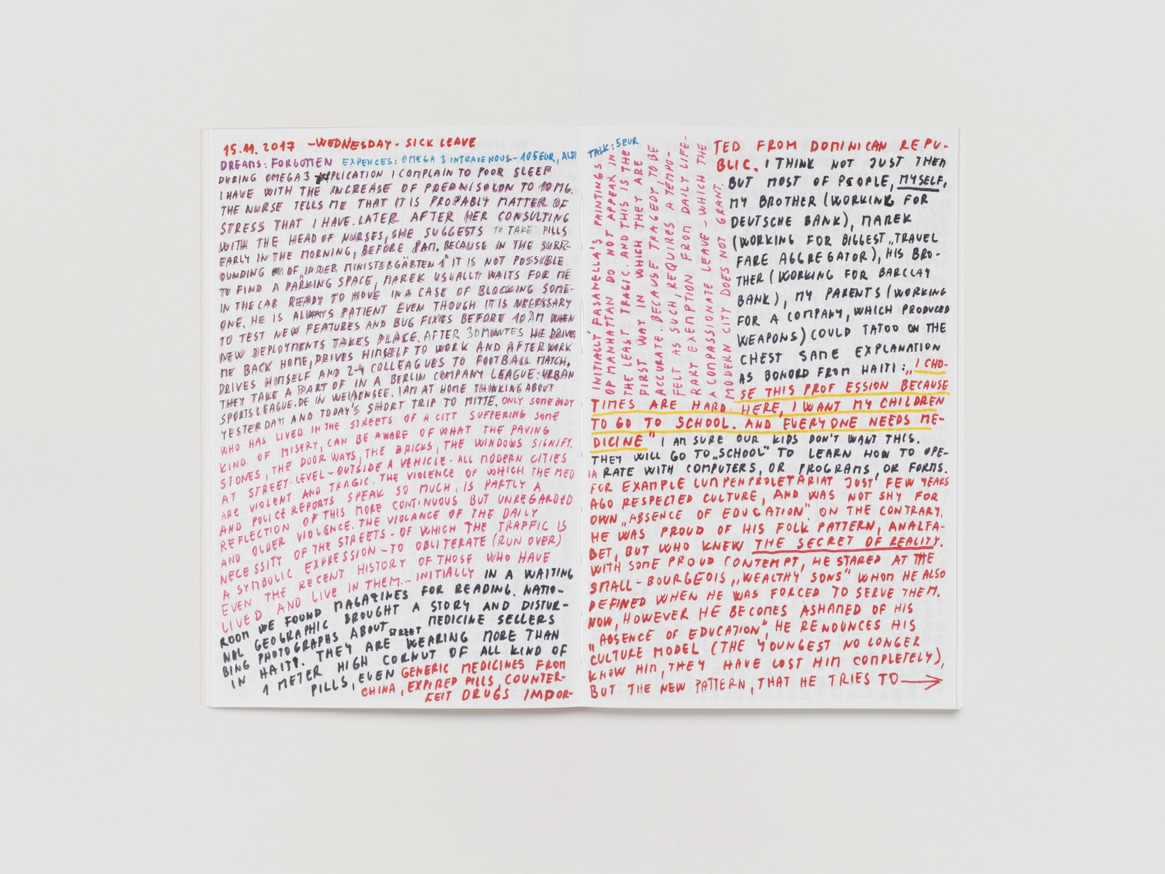 15.11.2017 - WEDNESDAY - SICK LEAVE
DREAMS: FORGOTTEN EXPENCES: OMEGA 3 INTRAVENOUS - 105EUR, ALDI
DURING OMEGA 3 APPLICATION I COMPLAIN TO POOR SLEEP
I HAVE WITH THE INCREASE OF PREDNISOLON TO 10MG.
THE NURSE TELLS ME THAT IT IS PROPABLY MATTER OF
STRESS THAT I HAVE. LATER AFTER HER CONSULTING
WITH THE HEAD OF NURSES, SHE SUGGESTS TO TAKE PILLS
EARLY IN THE MORNING, BEFORE 8AM, BECAUSE IN THE SURR-
OUNDING OF "IN DER MINISTERGÄRTEN" IT IS NOT POSSIBLE
TO FIND A PARKING SPACE, MAREK USUALLY WAITS FOR ME
IN THE CAR READY TO MOVE IN A CASE OF BLOCKING SOME-
ONE. HE IS ALWAYS PATIENT EVEN THOUGH IT IS NECESSARY
TO TEST NEW FEATURES AND BUG FIXIES BEFORE 10AM WHEN
NEW DEPLOYMENTS TAKES PLACE. AFTER 30 MINUTES HE DRIVES
ME BACK HOME, DRIVES HIMSELF TO WORK AND AFTERWORK
DRIVES HIMSELF AND 2-4 COLLEAGUES TO FOOTBALL MATCH,
THEY TAKE A PART OF IN A BERLIN COMPANY LEAGUE: URBAN
SPORTS LEAGUE.DE IN WEIßENSEE. I AM AT HOME THINKING ABOUT
YESTERDAY AND TODAY'S SHORT TRIP TO MITTE. ONLY SOMEBODY
WHO HAS LIVED IN THE STREETS OF A CITY SUFFERING SOME
KIND OF MISERY, CAN BE AWARE OF WHAT THE PAVING
STONES, THE DOORWAYS, THE BRICKS, THE WINDOWS SIGNIFY.
AT STREET-LEVEL - OUTSIDE A VEHICLE - ALL MODERN CITIES
ARE VIOLENT AND TRAGIC. THE VIOLENCE OF WHICH THE MED
AND POLICE REPORTS SPEAK SO MUCH, IS PARTLY A
REFLECTION OF THIS MORE CONTINUOUS BUT UNREGARDED
AND OLDER VIOLENCE. THE VIOLANCE OF THE DAILY
NECESSITY OF THE STREETS - OF WHICH THE TRAFFIC IS
A SYMBOLIC EXPRESSION - TO OBLITERATE (RUN OVER)
EVEN THE RECENT HISTORY OF THOSE WHO HAVE
LIVED AND LIVE IN THEM... INITIALLY IN A WAITING
ROOM WE FOUND MAGAZINES FOR READING. NATIO-
NAL GEOGRAPHIC BROUGHT A STORY AND DISTUR-
BING PHOTOGRAPHS ABOUT STREET MEDICINE SELLERS
IN HAITI. THEY ARE WEARING MORE THAN
1 METER HIGH CORNUT OF ALL KIND OF
PILLS, EVEN GENERIC MEDICINES FROM
CHINA, EXPIRED PILLS, COUNTER-
FEIT DRUGS IMPOR-
TALK: 5EUR
INITIALLY FASANELLA'S PAINTINGS
OF MANHATTAN DO NOT APPEAR IN
THE LEAST TRAGIC. AND THIS IS THE
FIRST WAY IN WHICH THEY ARE
ACCURATE. BECAUSE TRAGEDY TO BE
FELT AS SUCH, REQUIRES A TEMPO-
RARY EXEMPTION FROM DAILY LIFE-
A COMPASSIONATE LEAVE - WHICH THE
MODERN CITY DOES NOT GRANT.
TED FROM DOMINICAN REPU-
BLIC. I THINK NOT JUST THEM
BUT MOST OF PEOPLE, MYSELF,
MY BROTHER (WORKING FOR
DEUTSCHE BANK), MAREK
(WORKING FOR BIGGEST "TRAVEL
FARE AGGREGATOR), HIS BRO-
THER (WORKING FOR BARCLAY
BANK), MY PARENTS (WORKING
FOR A COMPANY, WHICH PRODUCED
WEAPONS) COULD TATOO ON THE
CHEST SAME EXPLANATION
AS BONORD FROM HAITI: „I CHO-
SE THIS PROFESSION BECAUSE
TIMES ARE HARD HERE, I WANT MY CHILDREN
TO GO TO SCHOOL. AND EVERYONE NEEDS ME-
DICINE" I AM SURE OUR KIDS DON'T WANT THIS.
THEY WILL GO TO „SCHOOL" TO LEARN HOW TO OPE-
RATE WITH COMPUTERS, OR PROGRAMS, OR FORMS.
FOR EXAMPLE LUMPENPROLETARIAT JUST FEW YEARS
AGO RESPECTED CULTURE, AND WAS NOT SHY FOR
OWN „ABSENCE OF EDUCATION" ON THE CONTRARY,
HE WAS PROUD OF HIS FOLK PATTERN, ANALFA-
BET, BUT WHO KNEW THE SECRET OF REALITY.
WITH SOME PROUD CONTEMPT, HE STARED AT THE
SMALL-BOURGEOIS „WEALTHY SONS" WHOM HE ALSO
DEFINED WHEN HE WAS FORCED TO SERVE THEM.
NOW, HOWEVER HE BECOMES ASHAMED OF HIS
"ABSENCE OF EDUCATION", HE RENOUNCES HIS
CULTURE MODEL (THE YOUNGEST NO LONGER
KNOW HIM, THEY HAVE LOST HIM COMPLETELY),
BUT THE NEW PATTERN, THAT HE TRIES TO →